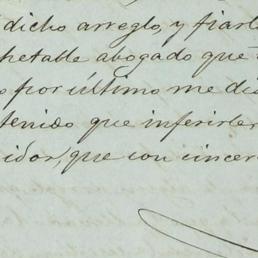 dicho arreglo, y fiarl
petable abogado que
por último me di
tenido que inferirle
idor, que con sincer